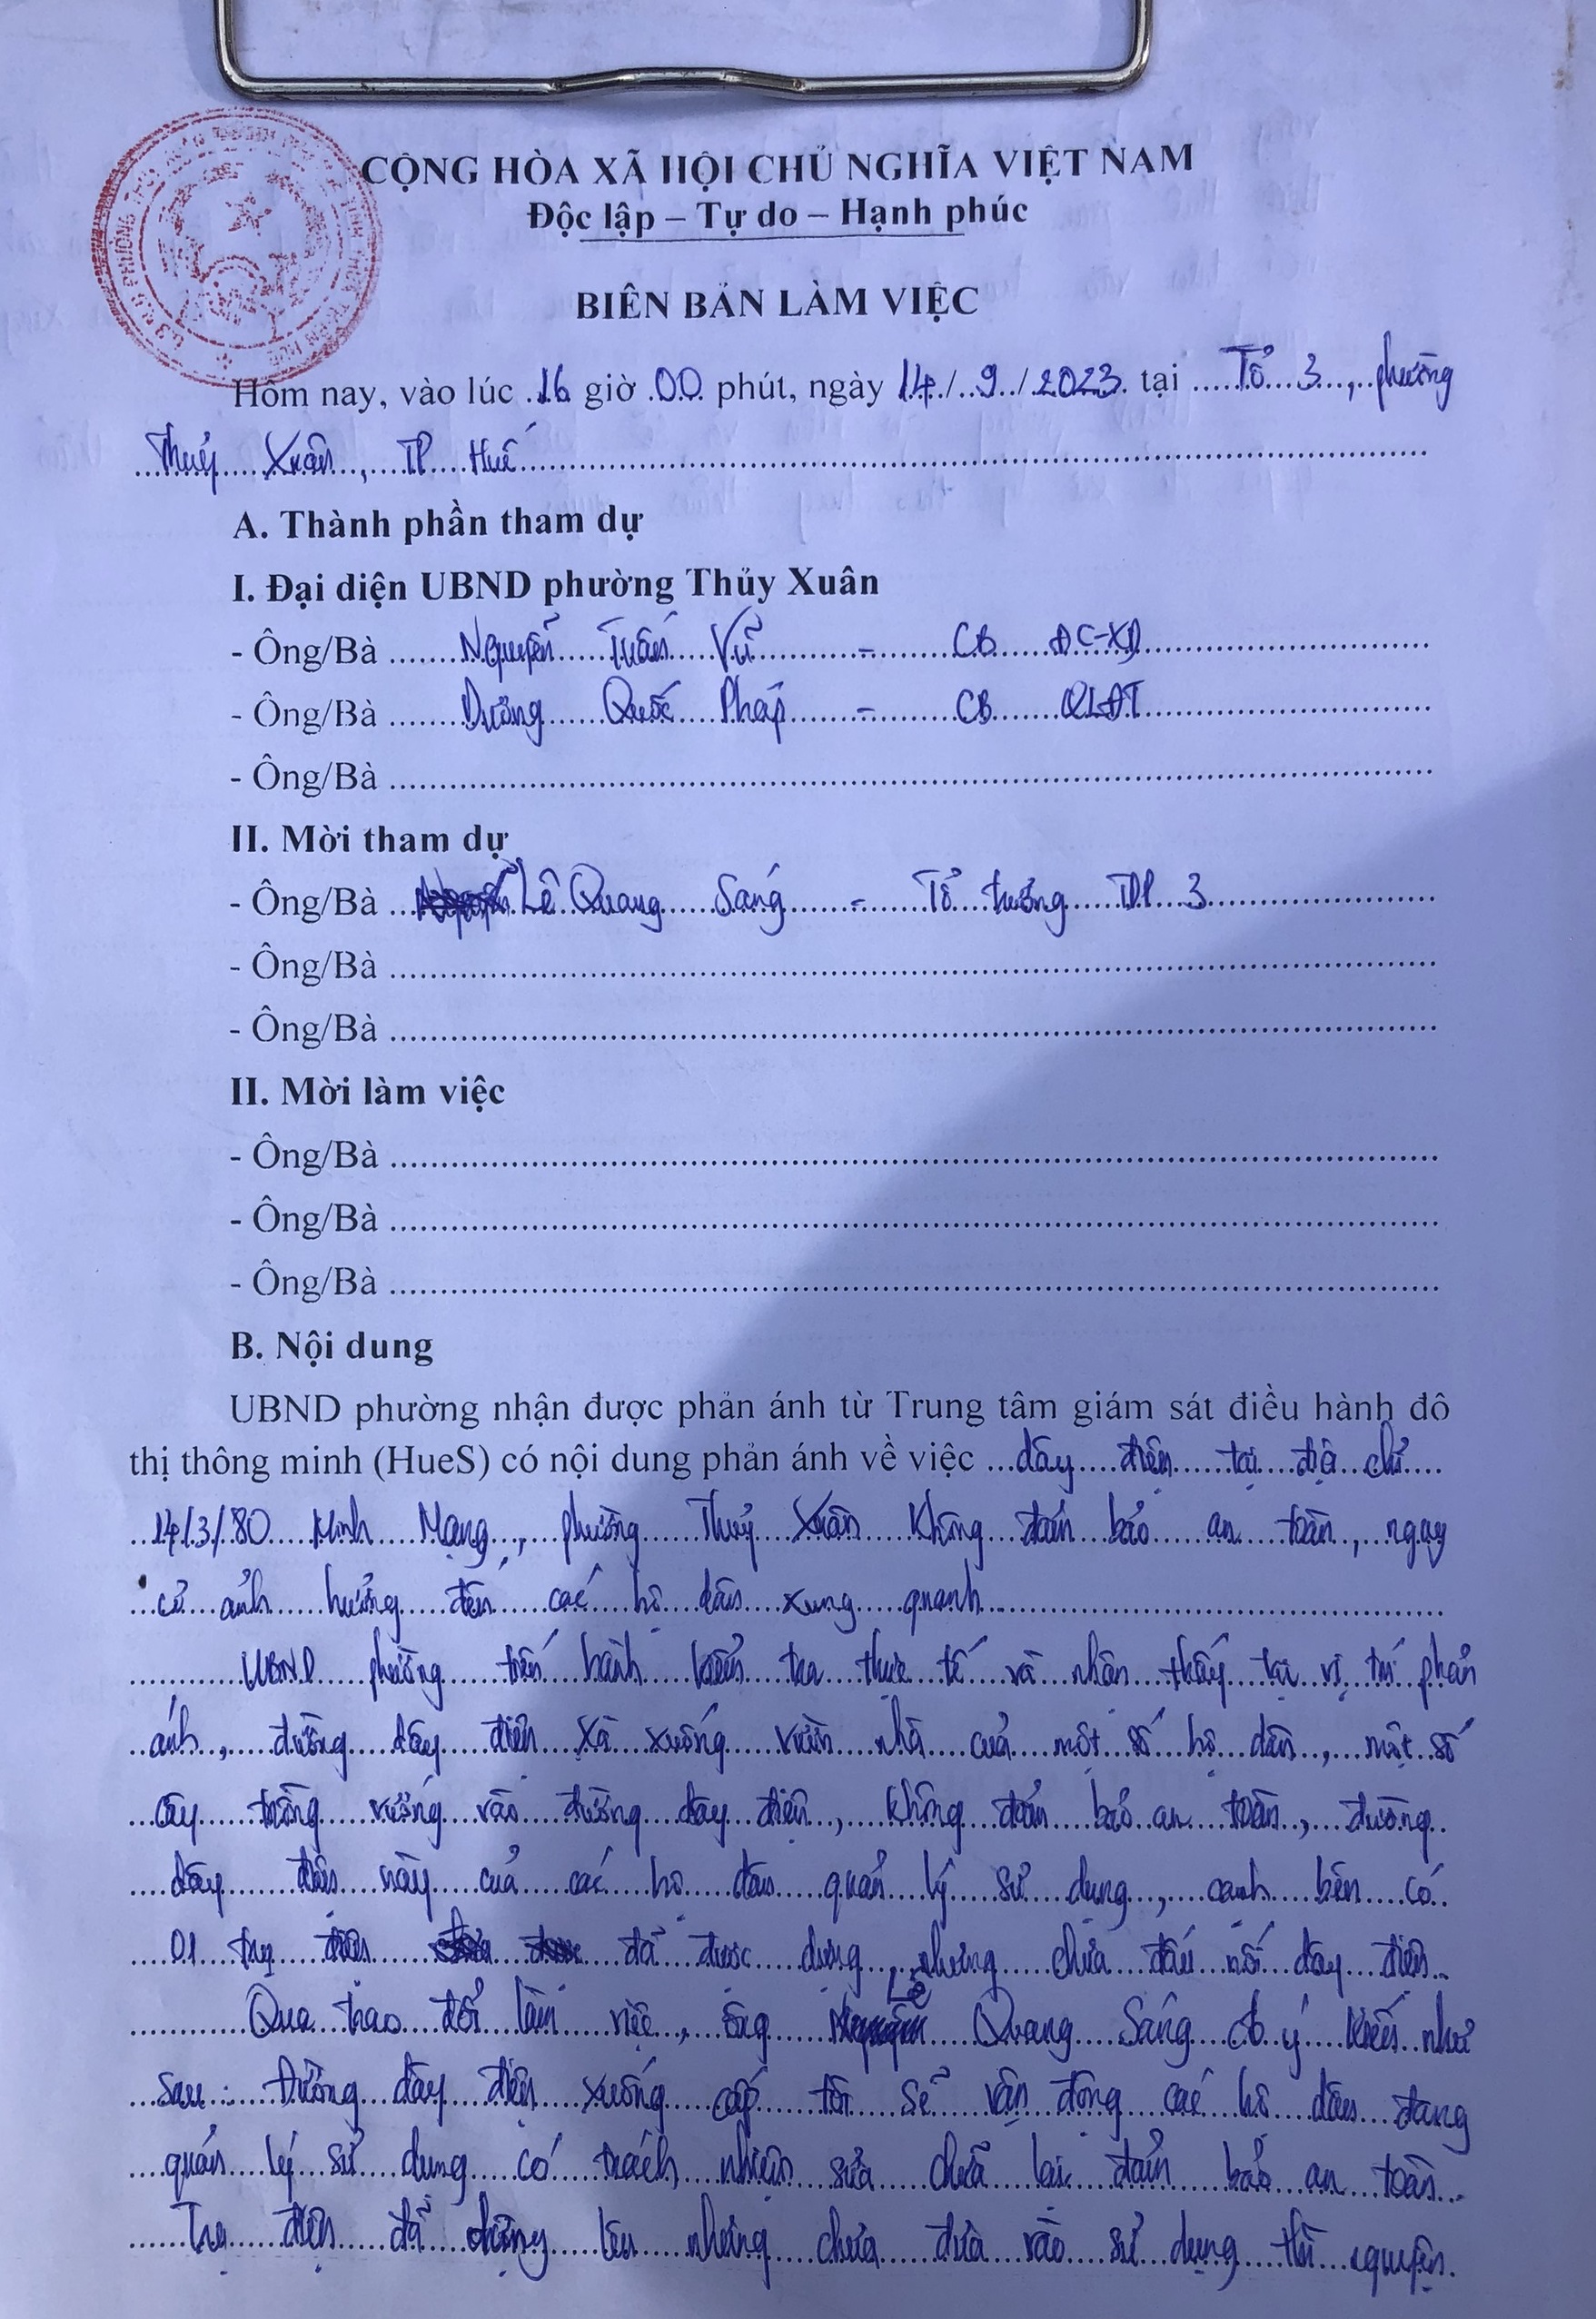 CỘNG HÒA XÃ HỘI CHỦ NGHĨA VIỆT NAM
Độc lập – Tự do – Hạnh phúc
BIÊN BẢN LÀM VIỆC
Hôm nay, vào lúc 16 giờ 00 phút, ngày 14/ 9 /2023 tại Tổ 3, phường
Thuỷ Xuân, TP Huế
A. Thành phần tham dự
I. Đại diện UBND phường Thủy Xuân
- Ông/Bà Nguyễn Tuấn Vũ - CB ĐC-XD
- Ông/Bà Dương Quốc Pháp - CB QLĐT
- Ông/Bà
II. Mời tham dự
- Ông/Bà Lê Quang Sáng - Tổ trưởng TDP 3
- Ông/Bà
- Ông/Bà
II. Mời làm việc
- Ông/Bà
- Ông/Bà
- Ông/Bà
B. Nội dung
UBND phường nhận được phản ánh từ Trung tâm giám sát điều hành đô
thị thông minh (HueS) có nội dung phản ánh về việc dây điện tại địa chỉ
14/3/80 Minh Mạng, phường Thuỷ Xuân không đảm bảo an toàn, nguy
cơ ảnh hưởng đến các hộ dân xung quanh
UBND phường tiến hành kiểm tra thực tế và nhận thấy tại vị trí phản
ánh, đường dây điện sà xuống vườn nhà của một số hộ dân, một số
cây trồng vướng vào đường dây điện, không đảm bảo an toàn, đường
dây điện này của các hộ dân quản lý sử dụng, cạnh bên có
01 trụ điện đã được dựng, nhưng chưa đấu nối dây điện.
Qua trao đổi làm việc, ông Lê Quang Sáng có ý kiến như
sau: Đường dây điện xuống cấp tôi sẽ vận động các hộ dân đang
quản lý sử dụng có trách nhiệm sửa chữa lại đảm bảo an toàn.
Trụ điện đã dựng lên nhưng chưa đưa vào sử dụng thì nguyện